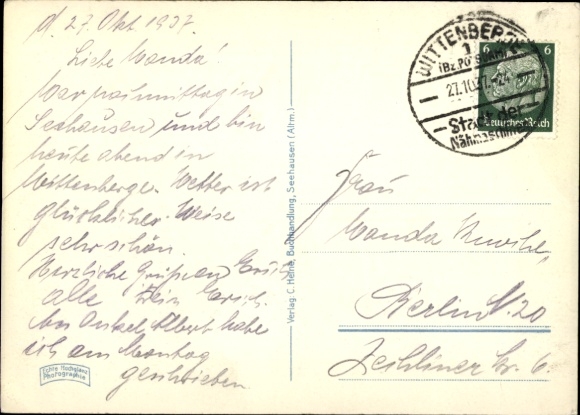 d. 27. Okt. 1937.
Liebe Wanda!
War vormittag in
Seehausen und bin
heute abend in
Wittenberge. Wetter ist
glücklicher Weise
sehr schön.
Herzliche Grüße an Euch
alle Dein Erich.
An Onkel Albert habe
ich am Montag
geschrieben.
Echte Hochglanz
Photographie
Verlag: C. Heine, Buchhandlung, Seehausen (Altm.)
WITTENBERGE
1
(Bz. POTSDAM)
27.10.37
Stadt der
Nähmaschinen
6 6
Deutsches Reich
Frau
Wanda
Berlin N. 20
Zechliner Str. 6.